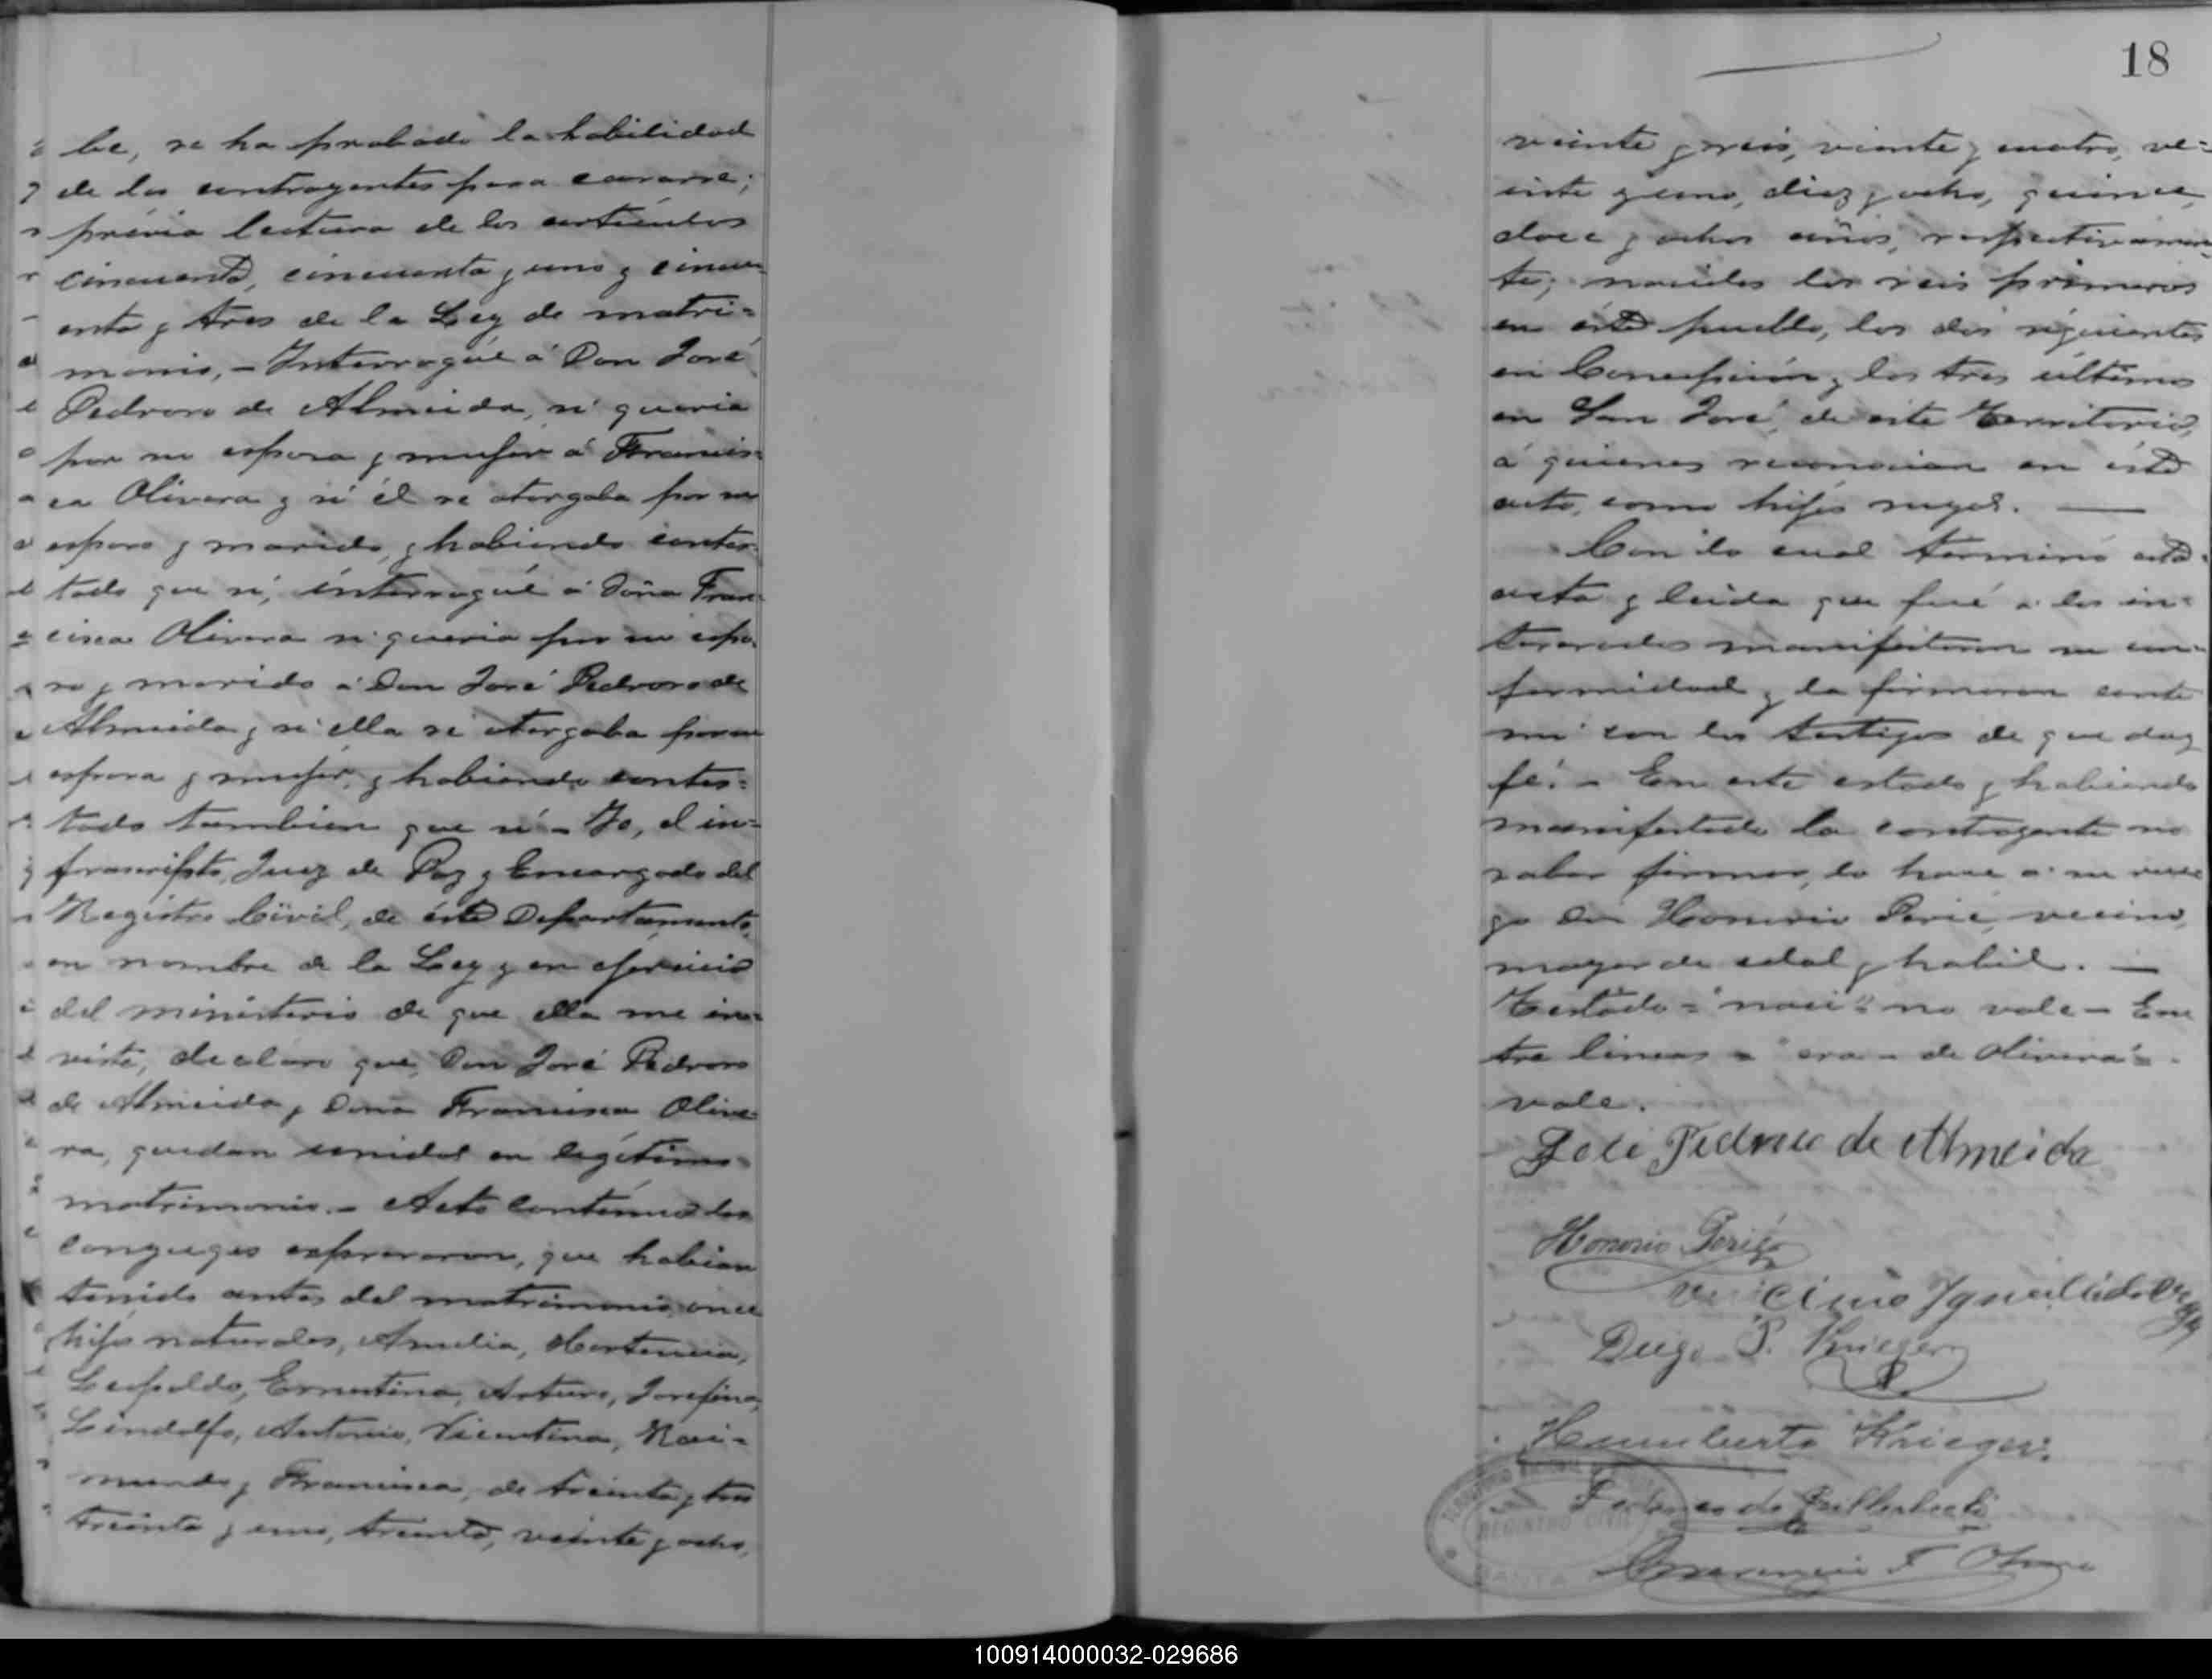 be, se ha probado la habilidad
de los contrayentes para casarse;
prévia lectura de los artículos
cincuenta, cincuenta y uno y cincu-
enta y tres de la Ley de matri=
monio, - Interrogué á Don José
Pedroso de Almeida, si queria
por su esposa y mujer á Francis=
ca Olivera y si él se otorgaba por su
esposo y marido, y habiendo contes-
tado que si, interrogué á Doña Fran-
cisca Olivera si queria por su espo-
so y marido á Don José Pedroso de
Almeida y si ella se otorgaba por su
esposa y mujer, y habiendo contes=
tado tambien que si - Yo, el in=
frascripto, Juez de Paz y Encargado del
Registro Civil, de éste Departamento,
en nombre de la Ley y en ejercicio
del ministerio de que ella me in-
viste, declaro que, Don José Pedroso
de Almeida y Doña Francisca Olive-
ra, quedan unidos en legítimo
matrimonio. - Acto contínuo los
conyuges expresaron, que habian
tenido antes del matrimonio once
hijos naturales, Amelia, Hortencia,
Leopoldo, Ernestina, Arturo, Josefina,
Lindolfo, Antonio, Vicentina, Rai-
mundo y Francisca, de treinta y tres
treinta y uno, treinta, veinte y ocho,
18
veinte y seis, veinte y cuatro, ve=
inte y uno, diez y ocho, quince,
doce y ochos años, respectivamen-
te; nacidos los seis primeros
en éste pueblo, los dos siguientes
en Concepción y los tres últimos
en San José, de este Territorio,
á quienes reconocian en éste
acto, como hijos suyos.
Con lo cual terminó esta
acta y leida que fué á los in-
teresados manifestaron su con-
formidad y la firmaron ante
mí con los testigos de que doy
fé. - En este estado y habiendo
manifestado la contrayente no
saber firmar, lo hace á su rue-
go Don Honorio Perié, vecino,
mayor de edad y habil.
Testado = "naci" = no vale - En
tre lineas = "era - de Olivera" =
vale.
José Pedroso de Almeida
Honorio Perié
Diego P. Krieger
Humberto Krieger
REGISTRO CIVIL